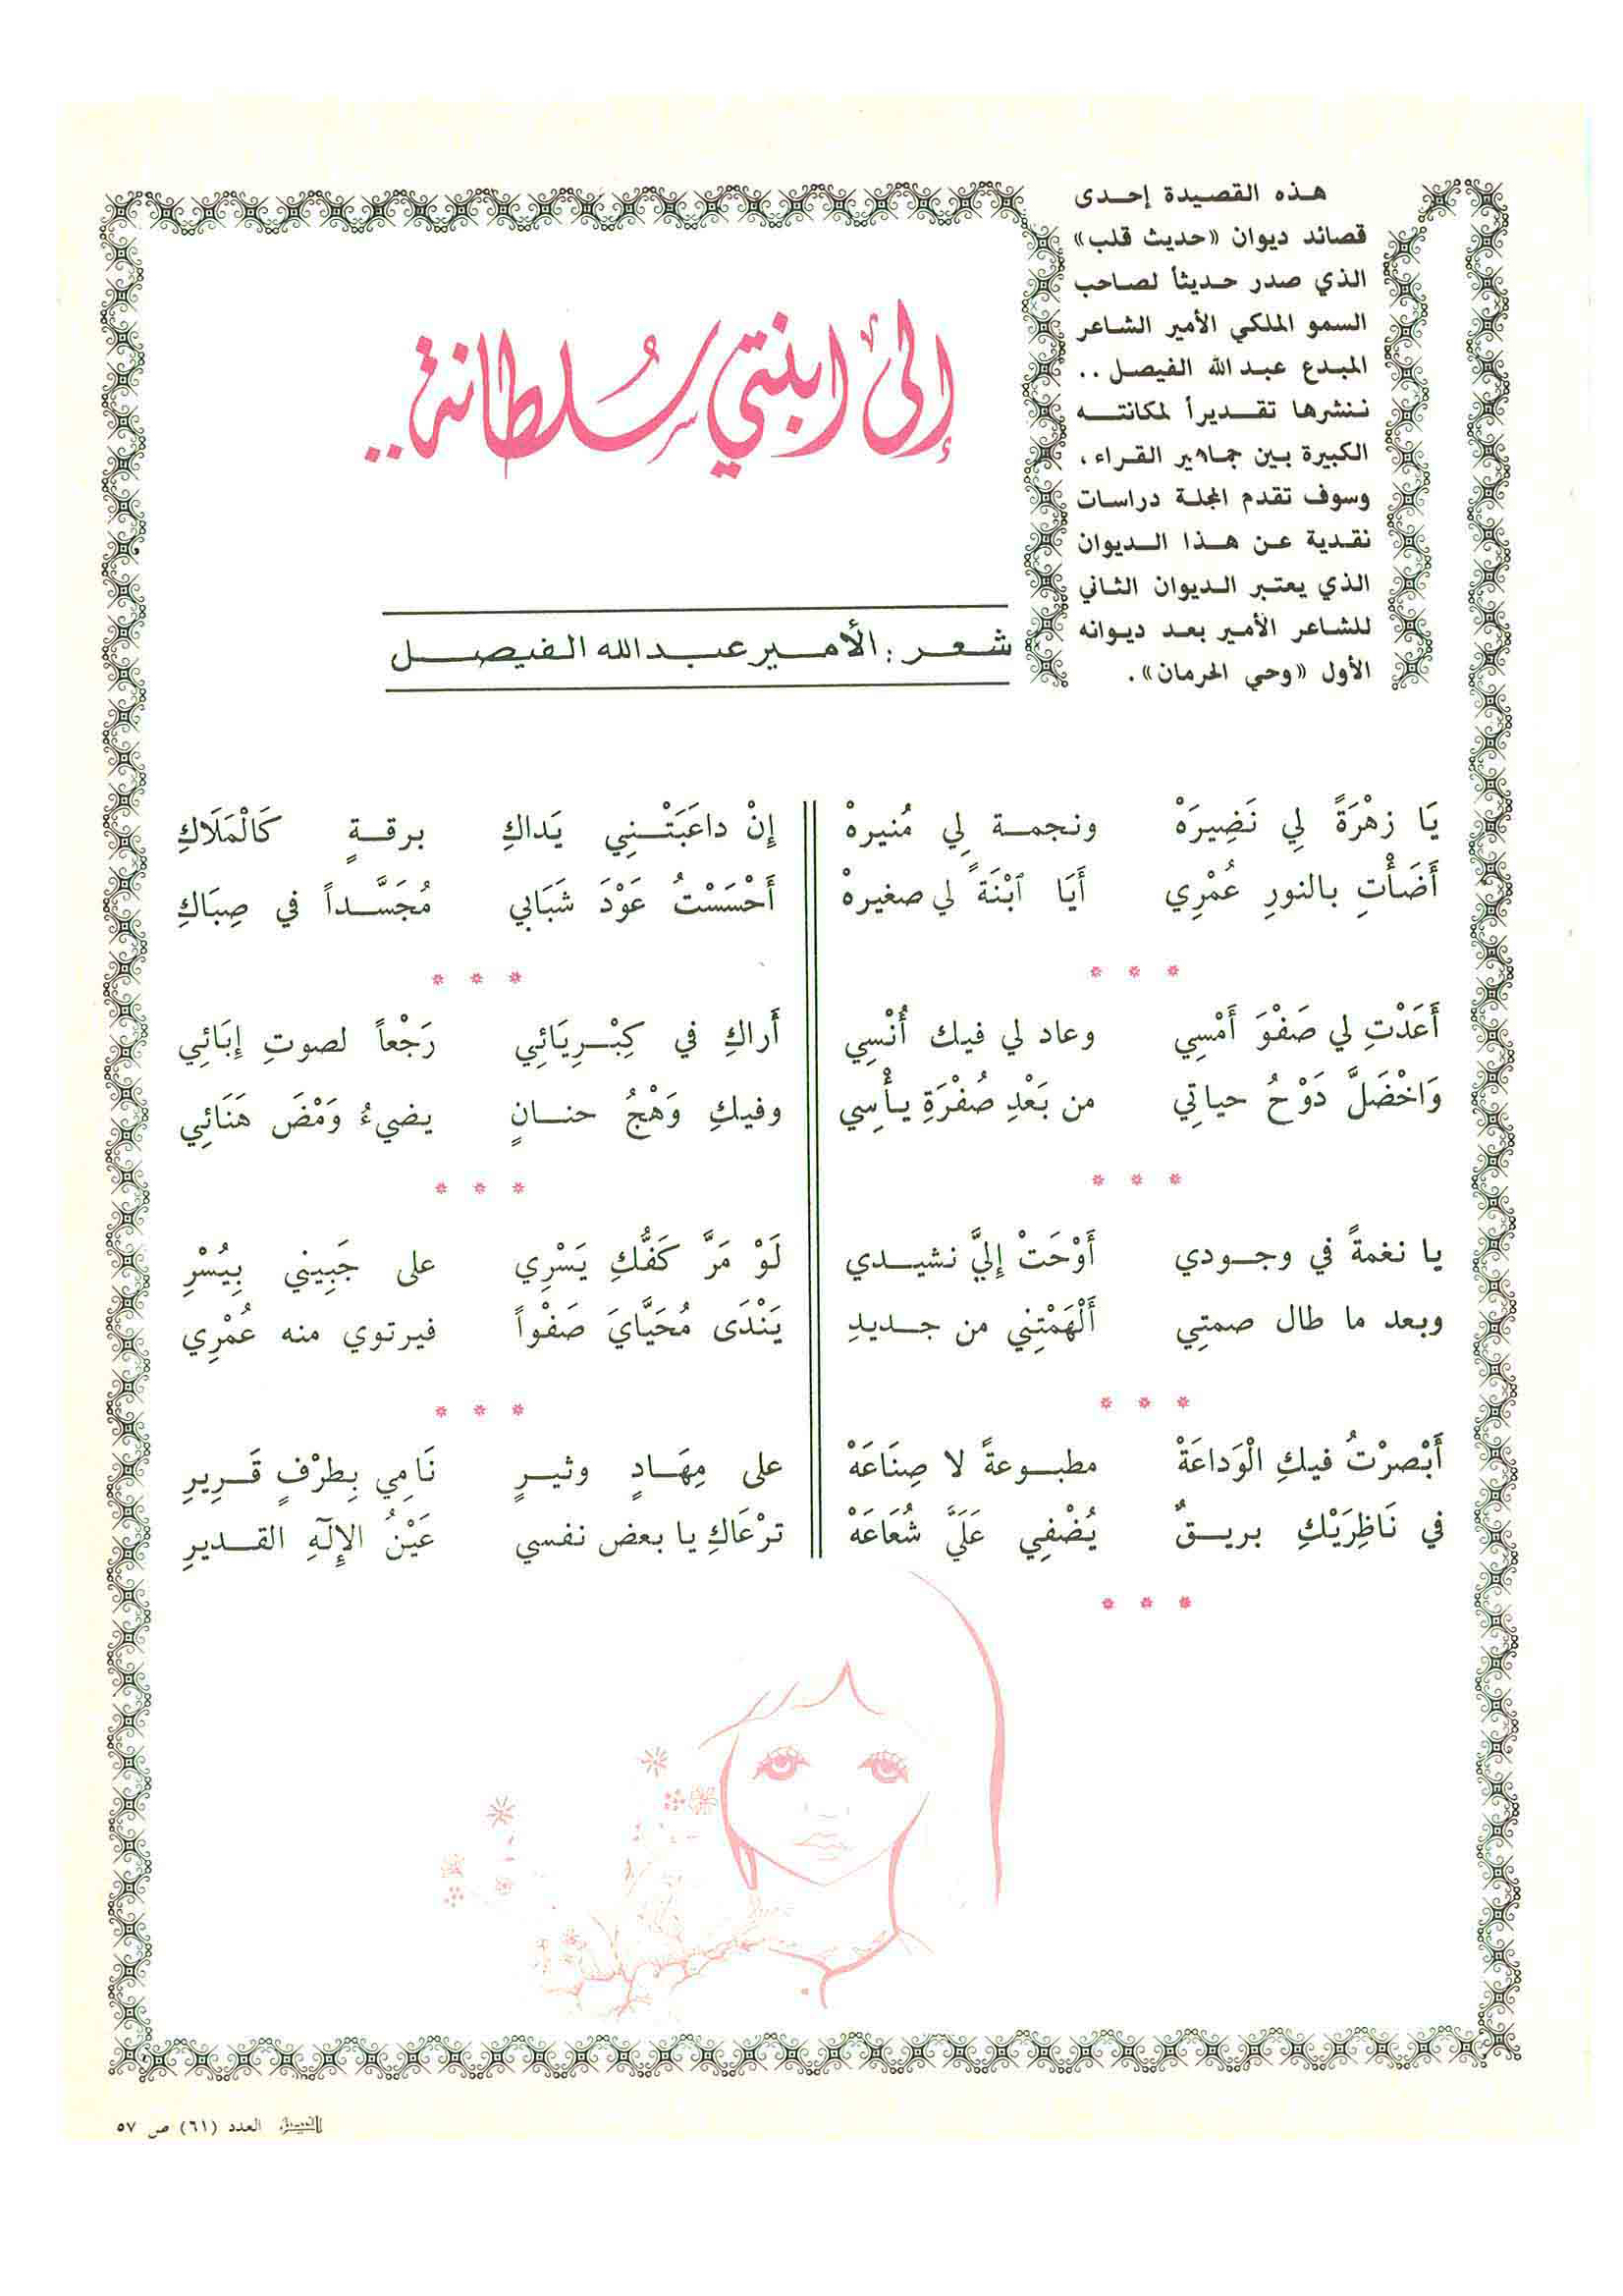 هذه القصيدة إحدى
قصائد ديوان «حديث قلب»
الذي صدر حديثاً لصاحب
السمو الملكي الأمير الشاعر
المبدع عبد الله الفيصل..
ننشرها تقديراً لمكانته
الكبيرة بين جماهير القراء،
وسوف تقدم المجلة دراسات
نقدية عن هذا الديوان
الذي يعتبر الديوان الثاني
للشاعر الأمير بعد ديوانه
الأول «وحي الحرمان».
إلى ابنتي سلطانة..
شعر: الأمير عبد الله الفيصل
يَا زهْرَةً لِي نَضِيرَهْ ونجمة لِي مُنيرهْ
أَضَأْتِ بالنورِ عُمْرِي أَيَا ٱبْنَةً لي صغيرهْ
* * *
أَعَدْتِ لي صَفْوَ أَمْسِي وعاد لي فيك أُنْسِي
وَاخْضَلَّ دَوْحُ حياتِي من بَعْدِ صُفْرَةِ يأْسِي
* * *
يا نغمةً في وجودي أَوْحَتْ إليَّ نشيدي
وبعد ما طال صمتِي أَلْهَمْتِني من جديدِ
* * *
أَبْصرْتُ فيكِ الْوَداعَةْ مطبوعةً لا صِنَاعَهْ
في نَاظِرَيْكِ بريقٌ يُضْفِي عَلَيَّ شُعَاعَهْ
* * *
إنْ داعَبَتْنِي يَداكِ برقةٍ كَالْمَلَاكِ
أَحْسَسْتُ عَوْدَ شَبَابي مُجَسَّداً في صِبَاكِ
* * *
أَراكِ في كِبْرِيَائِي رَجْعاً لصوتِ إبَائِي
وفيكِ وَهْجُ حنانٍ يضيءُ وَمْضَ هَنَائِي
* * *
لَوْ مَرَّ كَفُّكِ يَسْرِي على جَبِيني بِيُسْرِ
يَنْدَى مُحَيَّايَ صَفْواً فيرتوي منه عُمْرِي
* * *
على مِهَادٍ وثيرٍ نَامِي بِطرْفٍ قَرِيرِ
ترْعَاكِ يا بعض نفسي عَيْنُ الإلَهِ القديرِ
الفيصل العدد (٦١) ص ٥٧